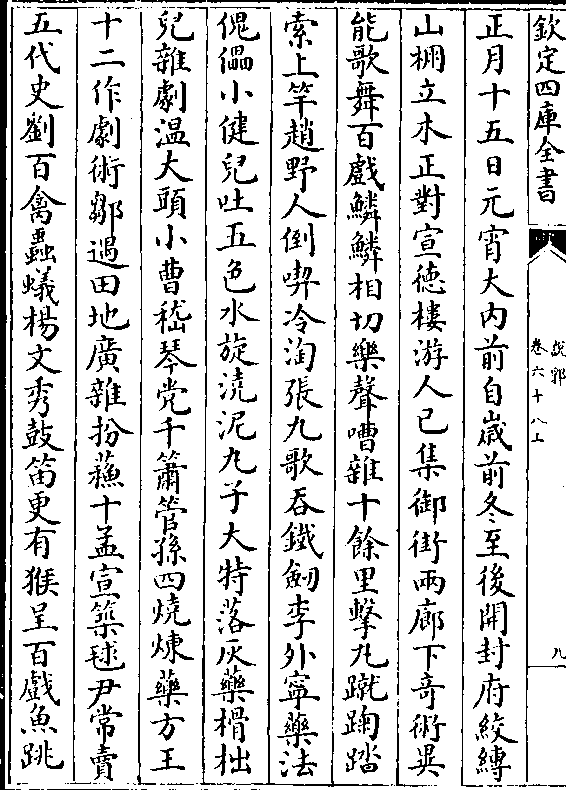 欽定四庫全書
說郛
卷六十八上
九
正月十五日元宵大內前自歲前冬至後開封府絞縛
山棚立木正對宣徳樓游人已集御街兩廊下竒術異
能歌舞百戲鱗鱗相切樂聲嘈雜十餘里擊丸蹴踘踏
索上竿趙野人倒喫冷淘張九歌吞鐵劒李外寧藥法
傀儡小健兒吐五色水旋澆泥丸子大特落灰藥榾柮
兒雜劇温大頭小曹嵇琴党千簫管孫四燒煉藥方王
十二作劇術鄒遇田地廣雜扮蘓十孟宣築毬尹常賣
五代史劉百禽蟲蟻楊文秀鼓笛更有猴呈百戲魚跳